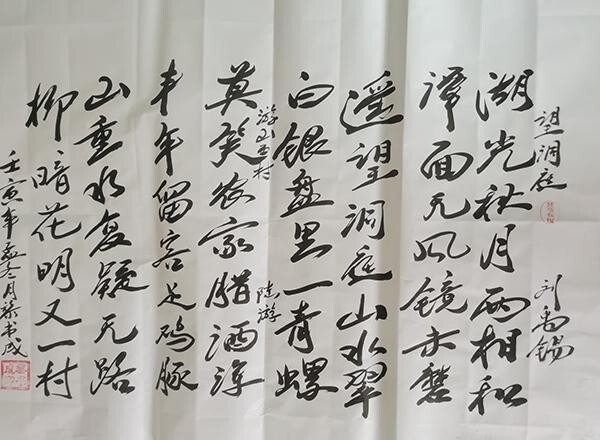 望洞庭 刘禹锡
湖光秋月两相和
潭面无风镜未磨
遥望洞庭山水翠
白银盘里一青螺
游山西村 陆游
莫笑农家腊酒浑
丰年留客足鸡豚
山重水复疑无路
柳暗花明又一村
壬寅年孟冬月书成